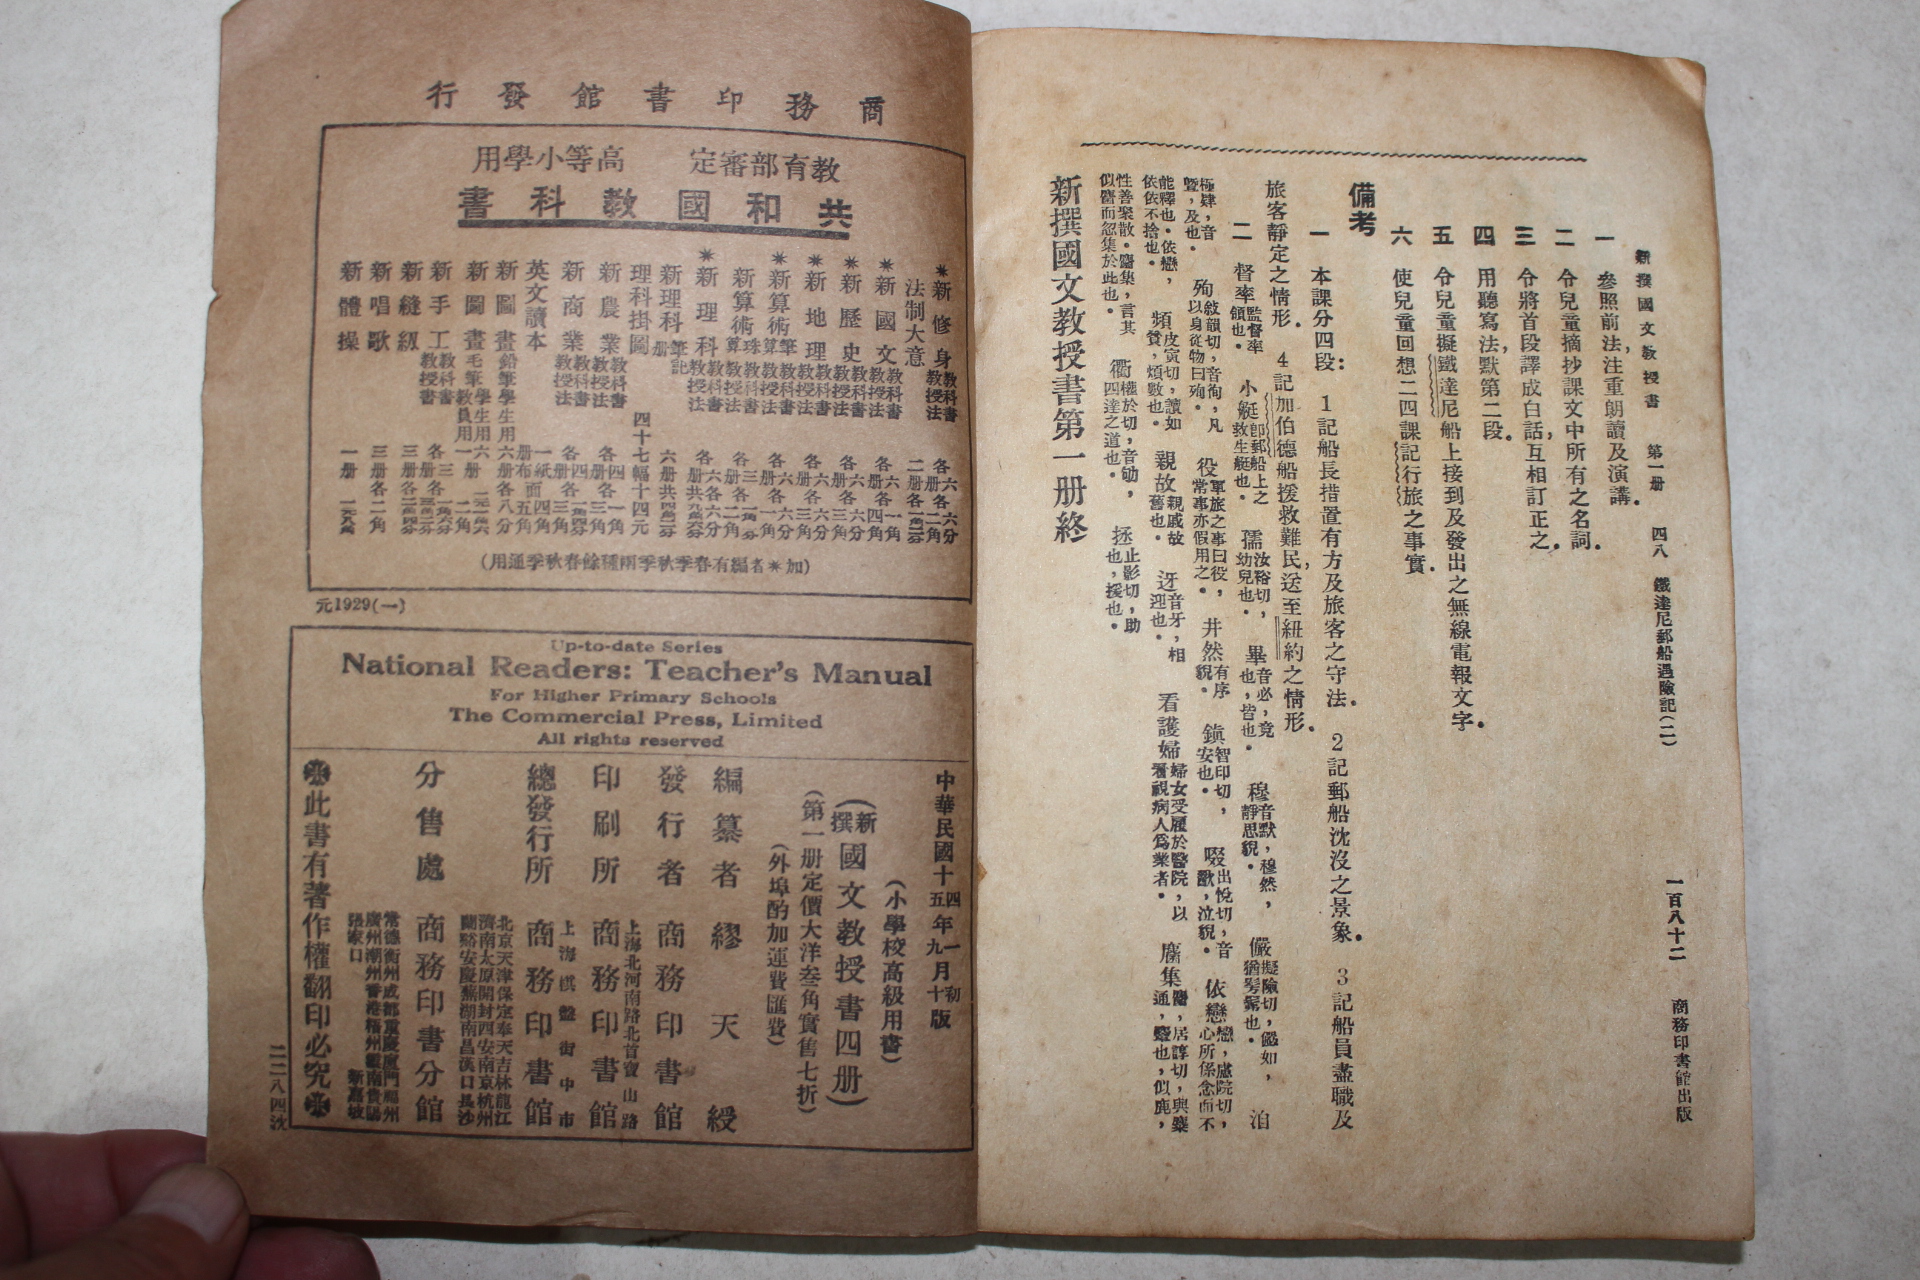 新撰國文教授書 第一册 四八 鐵達尼郵船遇險記(二) 一百八十二 商務印書館出版
一 參照前法注重朗讀及演講。
二 令兒童摘抄課文中所有之名詞。
三 令將首段譯成白話,互相訂正之。
四 用聽寫法,默第二段。
五 令兒童擬鐵達尼船上接到及發出之無線電報文字。
六 使兒童回想二四課記行旅之事實。
備考
一 本課分四段: 1記船長措置有方及旅客之守法。 2記郵船沈沒之景象。 3記船員盡職及
旅客靜定之情形。 4記加伯德船援救難民,送至紐約之情形。
二 督率監督率領也。 小艇卽郵船上之救生艇也。 孺汝裕切,幼兒也。 畢音必,竟也,皆也。 穆音默,穆然,靜思貌。 儼擬險切,儼如,猶髣髴也。 洎
極肄,音曁,及也。 殉敘韻切,音徇,凡以身從物曰殉。 役軍旅之事曰役,常事亦假用之。 井然有序貌。 鎭智印切,安也。 啜出悅切,音歠,泣貌。 依戀戀,盧院切,心所係念而不
能釋也。依戀,依依不捨也。 頻皮寅切,讀如貧,煩數也。 親故親戚故舊也。 迓音牙,相迎也。 看護婦婦女受雇於醫院,以看視病人爲業者。 麕集麕,居諄切,與麇通,麞也,似鹿,
性善聚散。麕集,言其似麕而忽集於此也。 衢權於切,音劬,四達之道也。 拯止影切,助也,援也。
新撰國文教授書第一册終
商務印書館發行
教育部審定 高等小學用
共和國教科書
*新修身 教科書 教授法 各六册 各六分 二角
法制大意 二册 各一角二分
*新國文 教科書 教授法 各六册 各一角 四角
*新歷史 教科書 教授法 各六册 各六分 三角
*新地理 教科書 教授法 各六册 各六分 三角
*新算術筆算 教科書 教授法 各六册 各六分 一角
新算術珠算 教科書 教授法
*新理科 教科書 教授法
新理科筆記册 六册
理科掛圖 四十七幅 十四元
新農業 教科書 教授法 各四册 各一角 三角
新商業 教科書 教授法
英文讀本
新圖畫 鉛筆學生用 六册 各八分
新圖畫 毛筆 學生用 教員用
新手工 教科書 教授書
新縫紉 三册
新唱歌 三册 各二角
新體操 一册
(加*者編有春季秋季兩種餘春秋季通用)
元1929(一)
Up-to-date Series
National Readers: Teacher's Manual
For Higher Primary Schools
The Commercial Press, Limited
All rights reserved
中華民國十四年一月初版
五年九月十版
(小學校高級用書)
(新撰國文教授書四册)
(第一册定價大洋叁角實售七折)
(外埠酌加運費匯費)
編纂者 繆天綬
發行者 商務印書館
印刷所 上海北河南路北首寶山路 商務印書館
總發行所 上海棋盤街中市 商務印書館
分售處 北京天津保定奉天吉林龍江
濟南太原開封西安南京杭州
蘭谿安慶蕪湖南昌漢口長沙
商務印書分館
常德衡州成都重慶廈門福州
廣州潮州香港梧州雲南貴陽
張家口 新嘉坡
此書有著作權翻印必究
二二八四沈